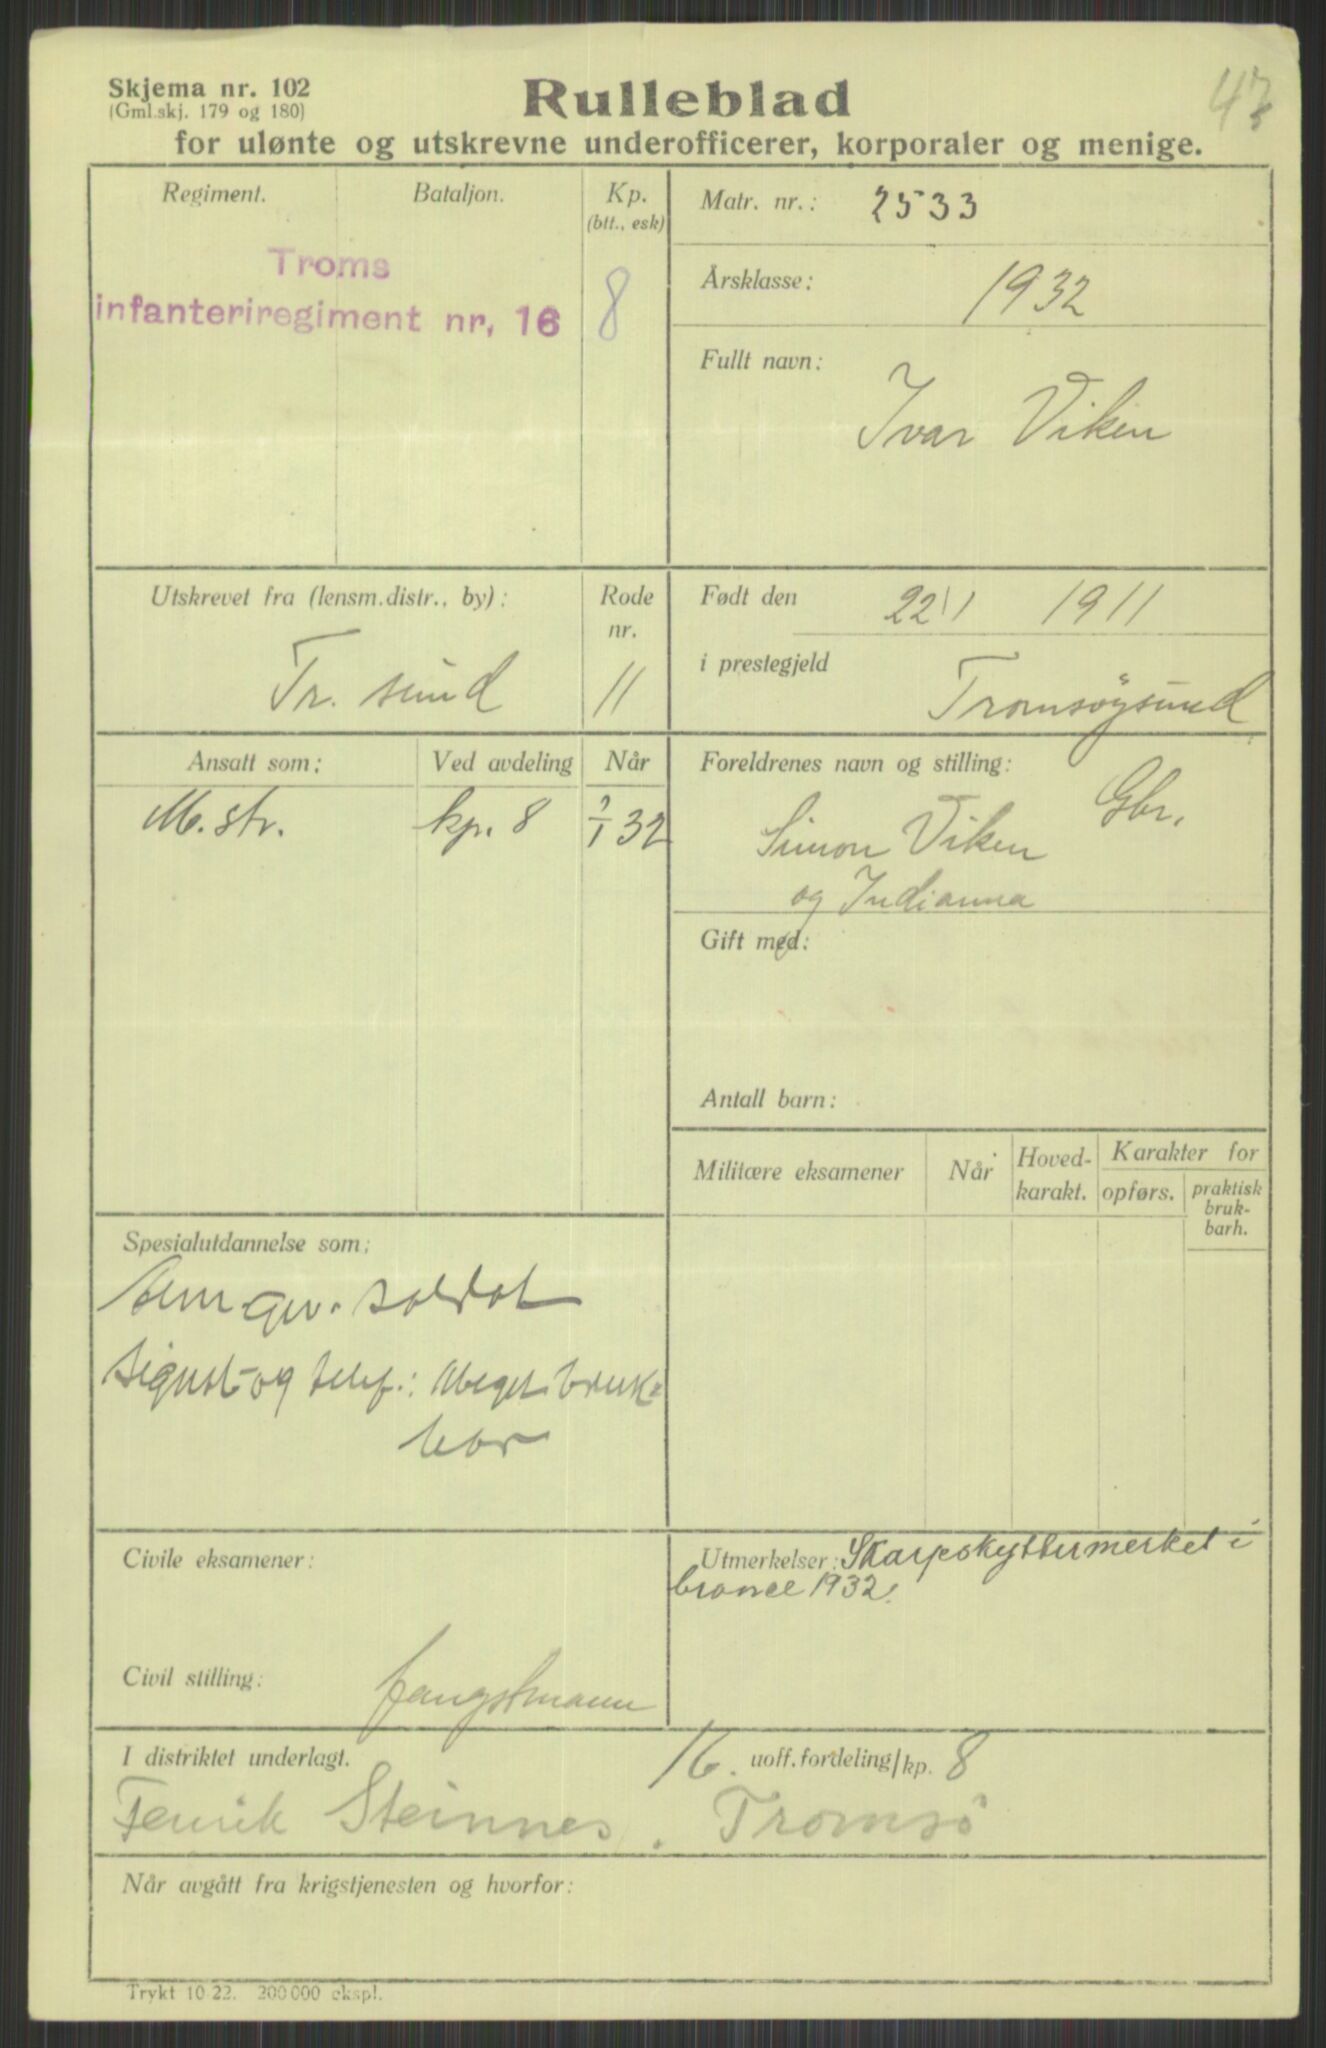 Skjema nr. 102
(Gml.skj. 179 og 180)
Rulleblad
for ulønte og utskrevne underofficerer, korporaler og menige.
Regiment. Bataljon. Kp.
(btt., esk)
Troms
infanteriregiment nr, 16 8
Matr. nr.: 2533
Årsklasse: 1932
Fullt navn:
Ivar Viken
Utskrevet fra (lensm.distr., by): Rode
nr.
Tr. sund 11
Født den 22/1 1911
i prestegjeld
Tromsøysund
Ansatt som: Ved avdeling Når
M.str. kp. 8 2/1 32
Foreldrenes navn og stilling:
Gbr.
Simon Viken
og Indianna
Gift med:
Antall barn:
Militære eksamener Når Hoved-
karakt. Karakter for
opførs. praktisk
bruk-
barh.
Spesialutdannelse som:
gev. soldat
signal- og telef.: Meget bruk-
bar
Civile eksamener:
Utmerkelser: Skarpskyttermerket i
bronce 1932.
Civil stilling: fangstmann
I distriktet underlagt. 16. uoff.fordeling/kp. 8
Fenrik Steinnes. Tromsö
Når avgått fra krigstjenesten og hvorfor:
Trykt 10 22. 200 000 ekspl.